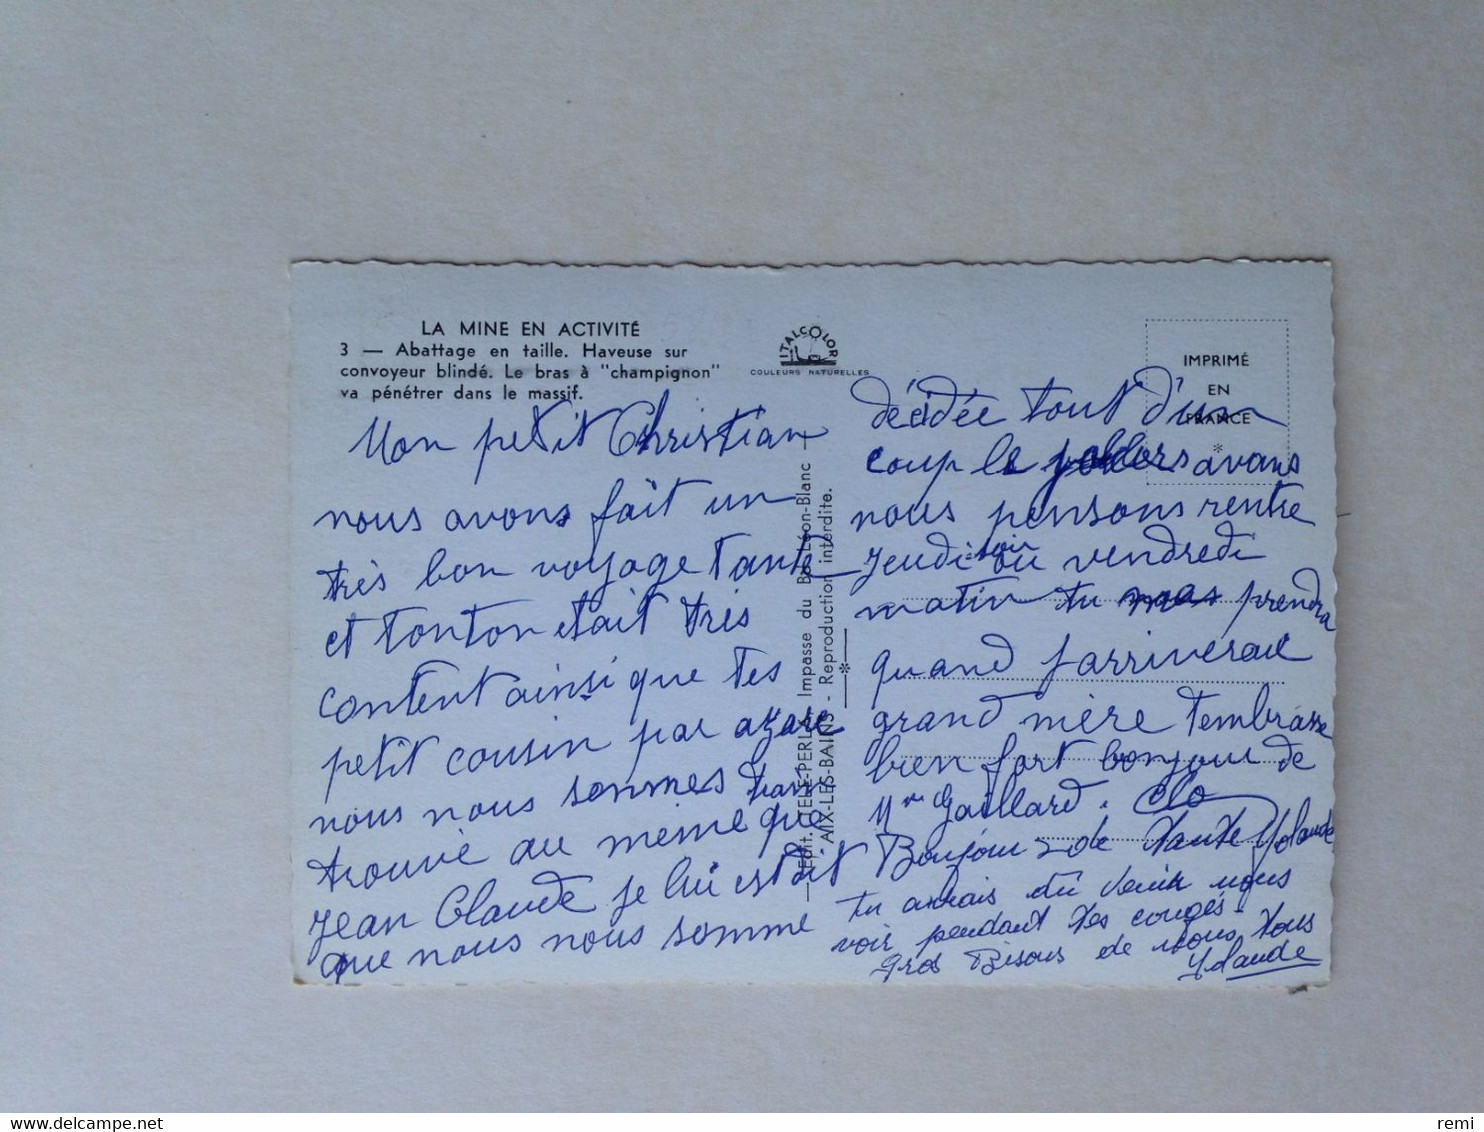 LA MINE EN ACTIVITÉ
3 — Abattage en taille. Haveuse sur
convoyeur blindé. Le bras à "champignon"
va pénétrer dans le massif.
ITALCOLOR
COULEURS NATURELLES
IMPRIMÉ
EN
FRANCE
*
Edit. "TELE-PERLA" Impasse du Bd Léon-Blanc
AIX-LES-BAINS - Reproduction interdite.
Mon petit Christian
nous avons fait un
très bon voyage Tante
et tonton etait très
content ainsi que tes
petit cousin par azare
nous nous sommes
trouvé au meme que
Jean Claude je lui est dit
que nous nous somme
décidée tout d'un
coup le avans
nous pensons rentre
Jeudi soir ou vendredi
matin tu prendra
quand j'arriverai
grand mère t'embrasse
bien fort bonjour de
Mme Gaillard. Clo
Bonjour de tante Yolande
tu aurais dû venir nous
voir pendant tes congés -
gros Bisous de nous tous
Yolande
remi